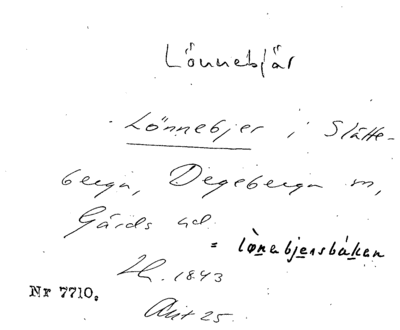 Lönnebjär
Lönnebjer i Slätte-
berga, Degeberga sn,
Gärds hd
= lònebjersbáken
Lh. 1843
Nr 7710.
Akt 25